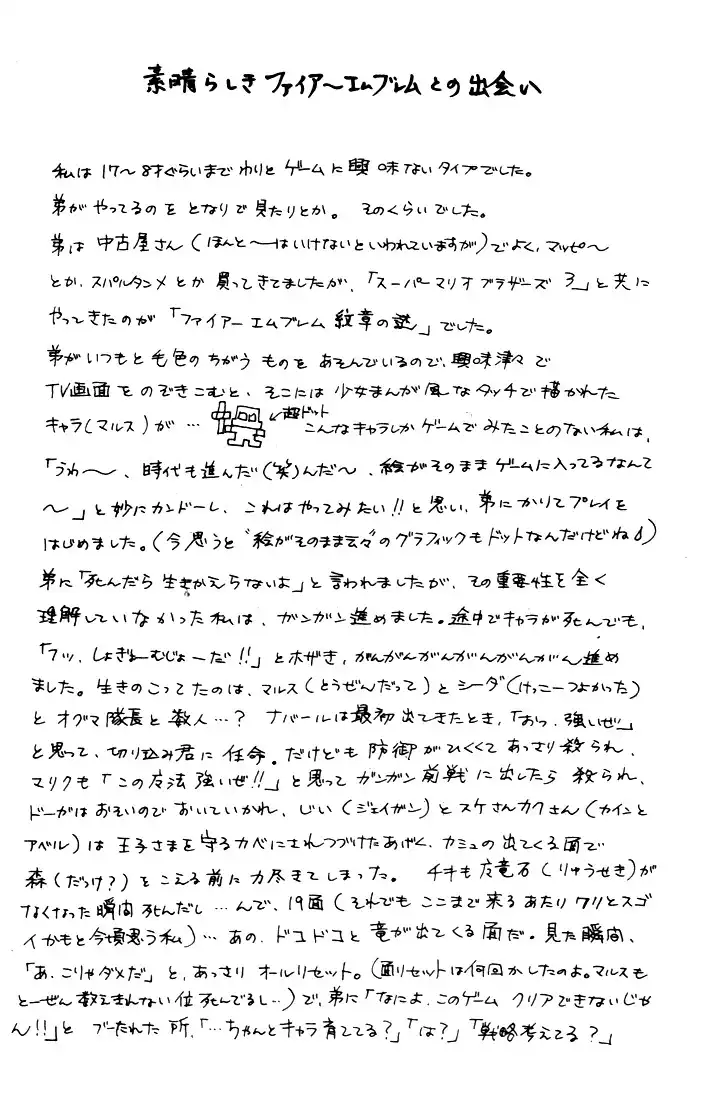 素晴らしきファイアーエムブレムとの出会い
私は17〜8才ぐらいまでわりとゲームに興味ないタイプでした。
弟がやってるのをとなりで見たりとか。そのくらいでした。
弟は中古屋さん(ほんと〜はいけないといわれていますが)でよく、マッピ〜
とか、スパルタンXとか買ってきてましたが、「スーパーマリオブラザーズ3」と共に
やってきたのが「ファイアーエムブレム紋章の謎」でした。
弟がいつもと毛色のちがうものをあそんでいるので、興味津々で
TV画面をのぞきこむと、そこには少女まんが風なタッチで描かれた
キャラ(マルス)が… ←超ドット こんなキャラしかゲームでみたことのない私は、
「うわ〜、時代も進んだ(笑)んだ〜、絵がそのままゲームに入ってるなんて
〜」と妙にカンドーし、これはやってみたい!!と思い、弟にかりてプレイを
はじめました。(今思うと“絵がそのまま云々”のグラフィックもドットなんだけどね)
弟に「死んだら生きかえらないよ」と言われましたが、その重要性を全く
理解していなかった私は、ガンガン進めました。途中でキャラが死んでも、
「フッ、しょぎょーむじょーだ!!」とホザき、がんがんがんがんがんがん進め
ました。生きのこってたのは、マルス(とうぜんだって)とシーダ(けっこーつよかった)
とオグマ隊長と数人…? ナバールは最初出てきたとき、「おっ、強いぜ」
と思って、切り込み君に任命。だけども防御がひくくてあっさり殺られ、
マリクも「この魔法強いぜ!!」と思ってガンガン前戦に出したら殺られ、
ドーガはおそいのでおいていかれ、じい(ジェイガン)とスケさんカクさん(カインと
アベル)は王子さまを守るカベにされつづけたあげく、カミュの出てくる面で
森(だっけ?)をこえる前に力尽きてしまった。 チキも魔竜石(りゅうせき)が
なくなった瞬間死んだし…んで、19面(それでもここまで来るあたりワリとスゴ
イかもと今頃思う私)…あの、ドコドコと竜が出てくる面だ。見た瞬間、
「あ、こりゃダメだ」と、あっさりオールリセット。(面リセットは何回かしたのよ。マルスも
とーぜん数えきれない位死んでるし…)で、弟に「なによ、このゲームクリアできないじゃ
ん!!」とブーたれた所、「…ちゃんとキャラ育ててる?」「は?」「戦略考えてる?」